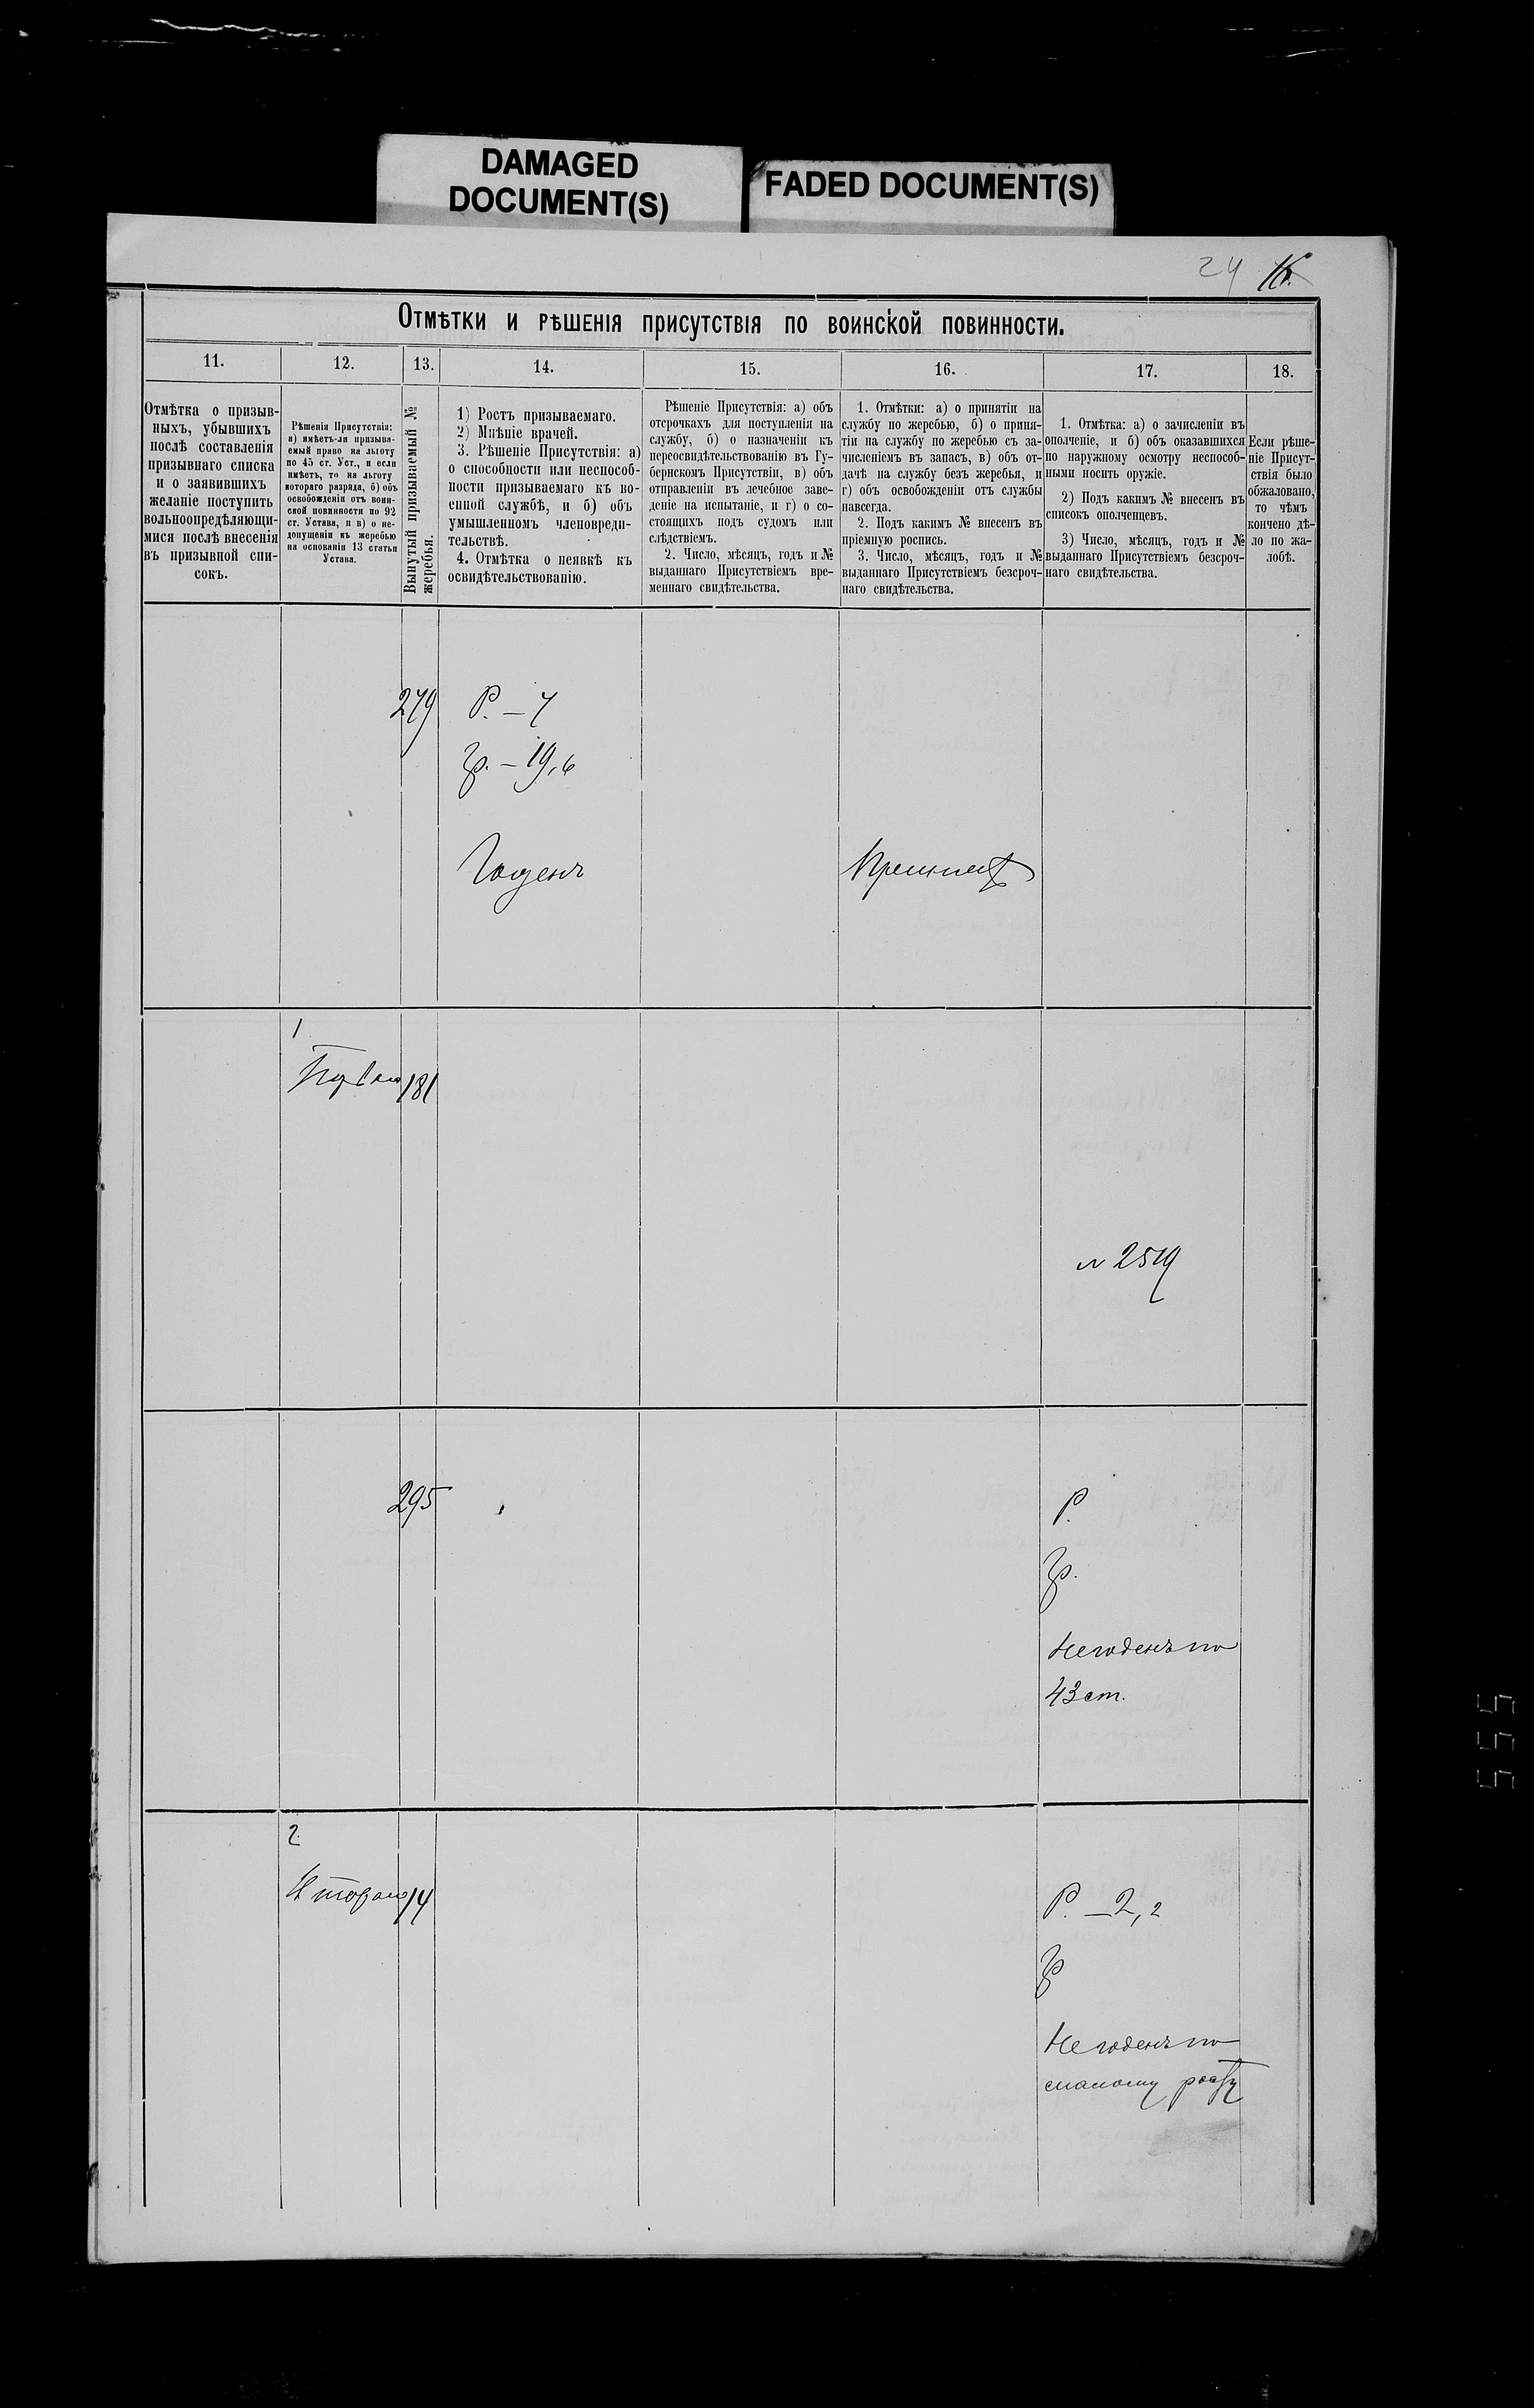 DAMAGED
DOCUMENT(S)
FADED DOCUMENT(S)
24
Отмѣтки и рѣшенія присутствія по воинской повинности.
11.
12.
13.
14.
15.
16.
17.
18.
Отмѣтка о призыв-
ныхъ, убывшихъ
послѣ составленія
призывнаго списка
и о заявившихъ
желаніе поступить
вольноопредѣляющи-
мися послѣ внесенія
въ призывной спи-
сокъ.
Рѣшенія Присутствія:
а) имѣетъ-ли призыва-
емый право на льготу
по 45 ст. Уст., и если
имѣетъ, то на льготу
котораго разряда, б) объ
освобожденіи отъ воин-
ской повинности по 92
ст. Устава, и в) о не-
допущеніи къ жеребью
на основаніи 13 статьи
Устава.
Вынутый призываемый №
жеребья.
1) Ростъ призываемаго.
2) Мнѣніе врачей.
3. Рѣшеніе Присутствія: а)
о способности или неспособ-
ности призываемаго къ во-
енной службѣ, и б) объ
умышленномъ членовреди-
тельствѣ.
4. Отмѣтка о неявкѣ къ
освидѣтельствованію.
Рѣшеніе Присутствія: а) объ
отсрочкахъ для поступленія на
службу, б) о назначеніи къ
переосвидѣтельствованію въ Гу-
бернскомъ Присутствіи, в) объ
отправленіи въ лечебное заве-
деніе на испытаніе, и г) о со-
стоящихъ подъ судомъ или
слѣдствіемъ.
2. Число, мѣсяцъ, годъ и №
выданнаго Присутствіемъ вре-
меннаго свидѣтельства.
1. Отмѣтки: а) о принятіи на
службу по жеребью, б) о приня-
тіи на службу по жеребью съ за-
численіемъ въ запасъ, в) объ от-
дачѣ на службу безъ жеребья, и
г) объ освобожденіи отъ службы
навсегда.
2. Подъ какимъ № внесенъ въ
пріемную роспись.
3. Число, мѣсяцъ, годъ и №
выданнаго Присутствіемъ безсроч-
наго свидѣтельства.
1. Отмѣтка: а) о зачисленіи въ
ополченіе, и б) объ оказавшихся
по наружному осмотру неспособ-
ными носить оружіе.
2) Подъ какимъ № внесенъ въ
списокъ ополченцевъ.
3) Число, мѣсяцъ, годъ и №
выданнаго Присутствіемъ безсроч-
наго свидѣтельства.
Если рѣше-
ніе Присут-
ствія было
обжаловано,
то чѣмъ
кончено дѣ-
ло по жа-
лобѣ.
279
Р. – 7
Гр. – 19,6
Годенъ
Принятъ
1
181
№ 2519
295
Р.
Гр.
Негоденъ по
43 ст.
2
Втораго
14
Р. – 2,2
Гр
Негоденъ по
малому росту
555